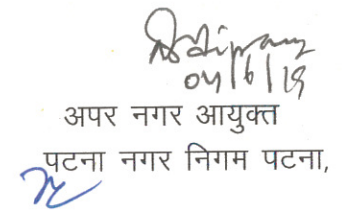 04/6/19
अपर नगर आयुक्त
पटना नगर निगम पटना,